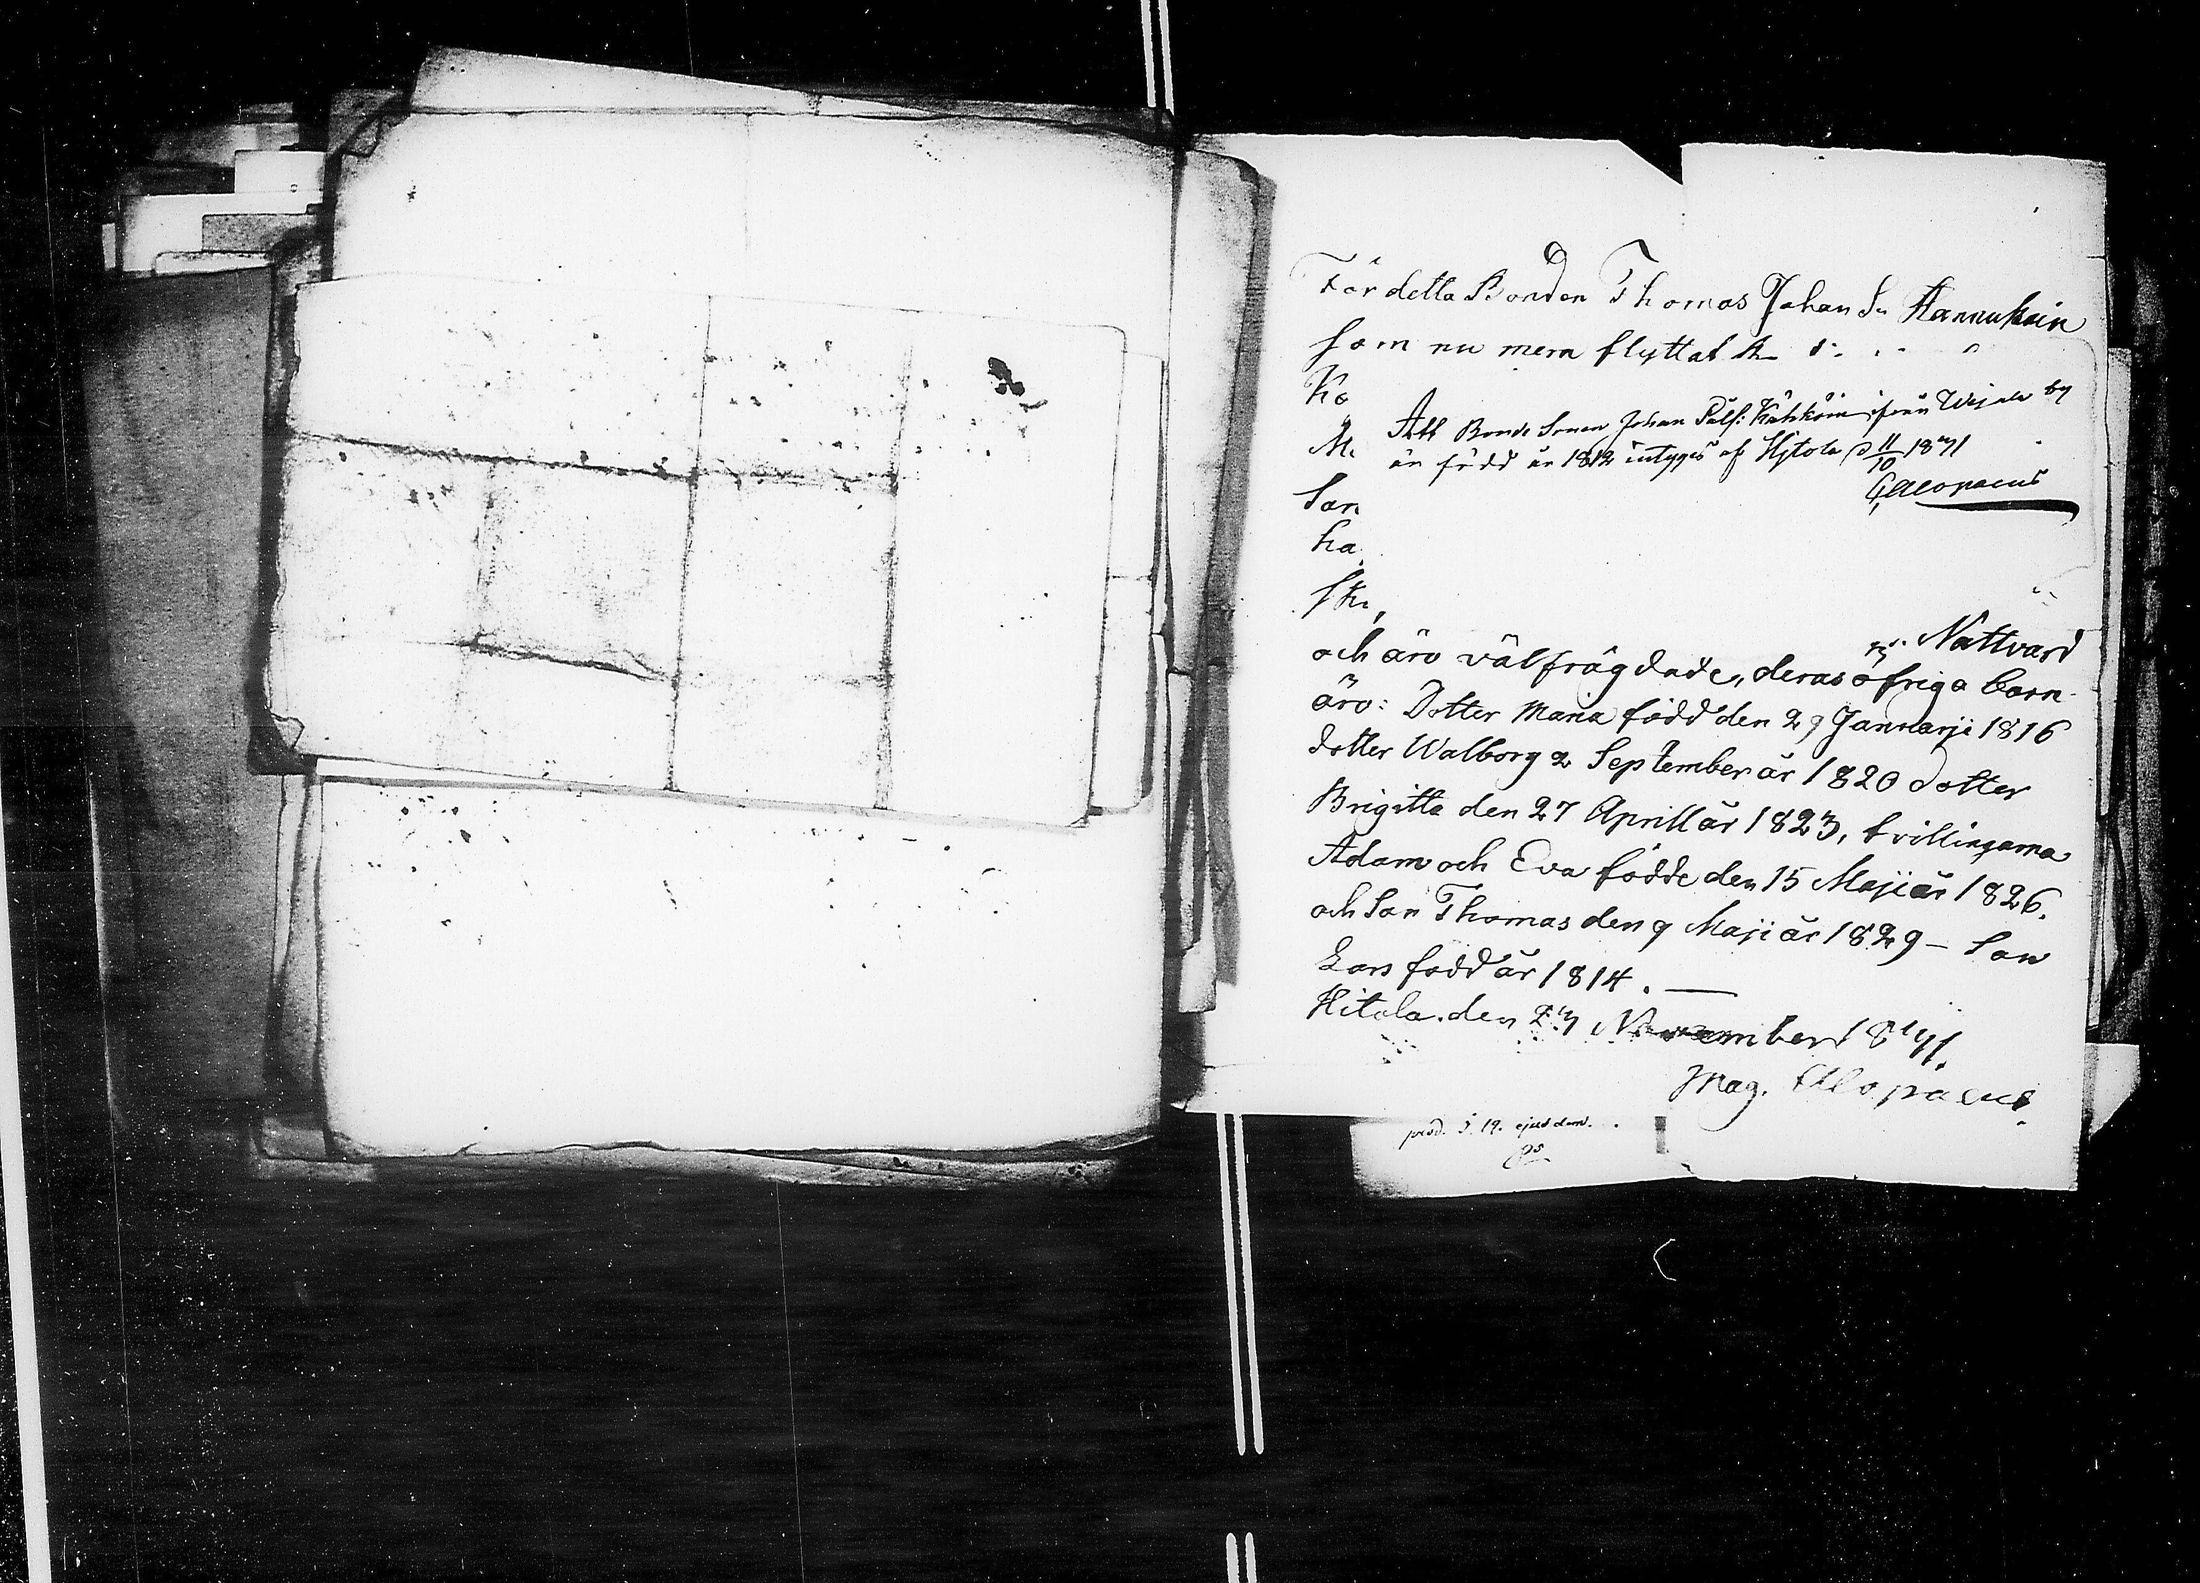 För detta Bonden Thomas Johan Sn Hannukain
som nu mera flyttat
Ko
Att Bonde Sonen Johan Pålss: Kähköin ifrån by
är född år 1812 intygas af Hjtola d 11/10 1841
G Alopaeus
Son
ha
Nattvard
och äro välfrägdade, deras öfriga barn
äro: Dotter Maria född den 29 Januarji 1816
dotter Walborg 2 September år 1820 dotter
Brigitta den 27 Aprill år 1823, tvillingarna
Adam och Eva födde den 15 Maji år 1826.
och Son Thomas den 9 Maji år 1829 – Son
Lars född år 1814. —
Hitola. den November 1841.
Mag. Alopaeus.
prod. d. 19. ejusdem.